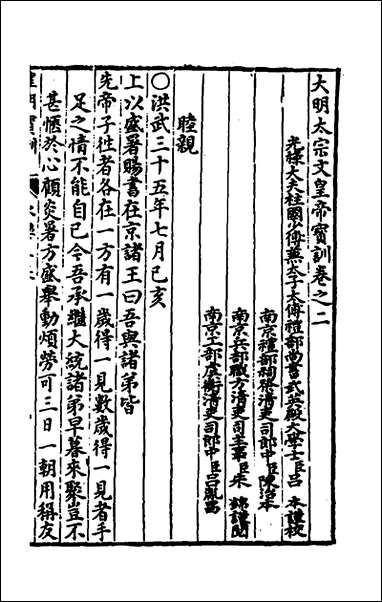 大明太宗文皇帝寶訓卷之二
光祿大夫柱國少傅兼太子太傅禮部尚書武英殿大學士臣呂本謹校
南京禮部祠祭清吏司郎中臣陳治本
南京兵部職方清吏司主事臣朱錦謹閱
南京工部虞衡清吏司郎中臣呂胤昌
睦親
○洪武三十五年七月己亥
上以盛暑賜書在京諸王曰吾與諸弟皆
先帝子徃者各在一方有一歲得一見數歲得一見者手
足之情不能自已今吾承繼大統諸弟早暮來聚豈不
甚愜於心顧炎暑方盛舉動煩勞可三日一朝用稱友